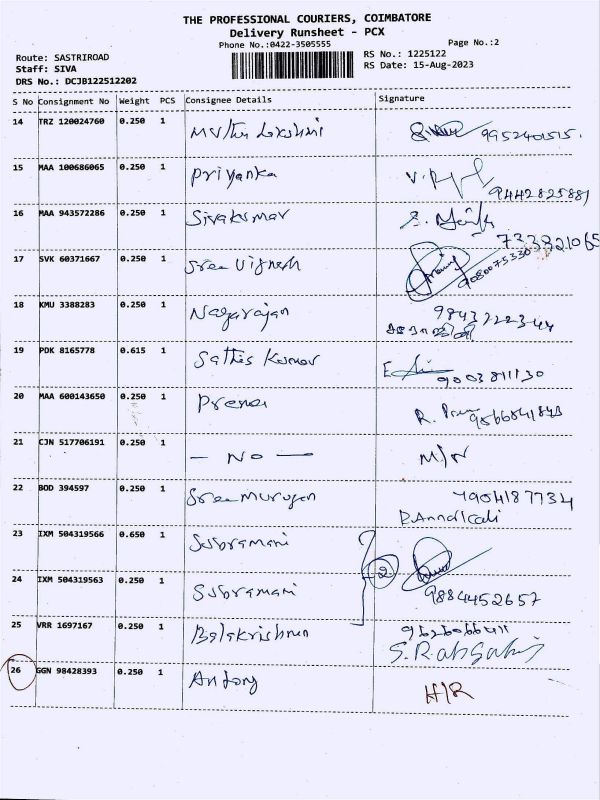 THE PROFESSIONAL COURIERS, COIMBATORE
Delivery Runsheet - PCX
Phone No.:0422-3505555
Page No.:2
Route: SASTRIROAD
RS No.: 1225122
Staff: SIVA
RS Date: 15-Aug-2023
DRS No.: DCJB122512202
S No Consignment No Weight PCS Consignee Details Signature
14 TRZ 120024760 0.250 1 Muthu Lakshmi 9952401515.
15 MAA 100686065 0.250 1 Priyanka
9442825881
16 MAA 943572286 0.250 1 Sivakumar
733821065
17 SVK 60371667 0.250 1 Sree Vignesh 9080075330
18 KMU 3388283 0.250 1 Nagarajan 9843222344
19 PDK 8165778 0.615 1 Sathis Kumar
9003811130
20 MAA 600143650 0.250 1 Prema R.
21 CJN 517706191 0.250 1 — NO — M/N
22 BOD 394597 0.250 1 Sree Murugan 7904187734
23 IXM 504319566 0.650 1 Subramani 2
24 IXM 504319563 0.250 1 Subramani 9884452657
25 VRR 1697167 0.250 1 Balakrishnan
26 GGN 98428393 0.250 1 Antony H/R